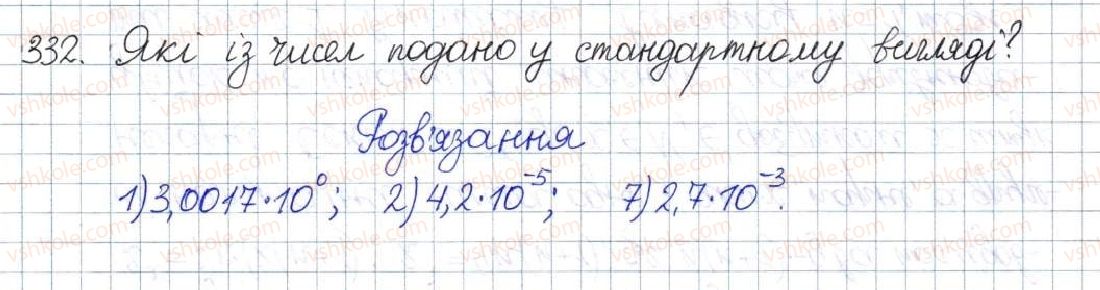 332. Які із чисел подано у стандартному вигляді?
Розв'язання
1) 3,0017·10⁰; 2) 4,2·10⁻⁵; 7) 2,7·10⁻³.